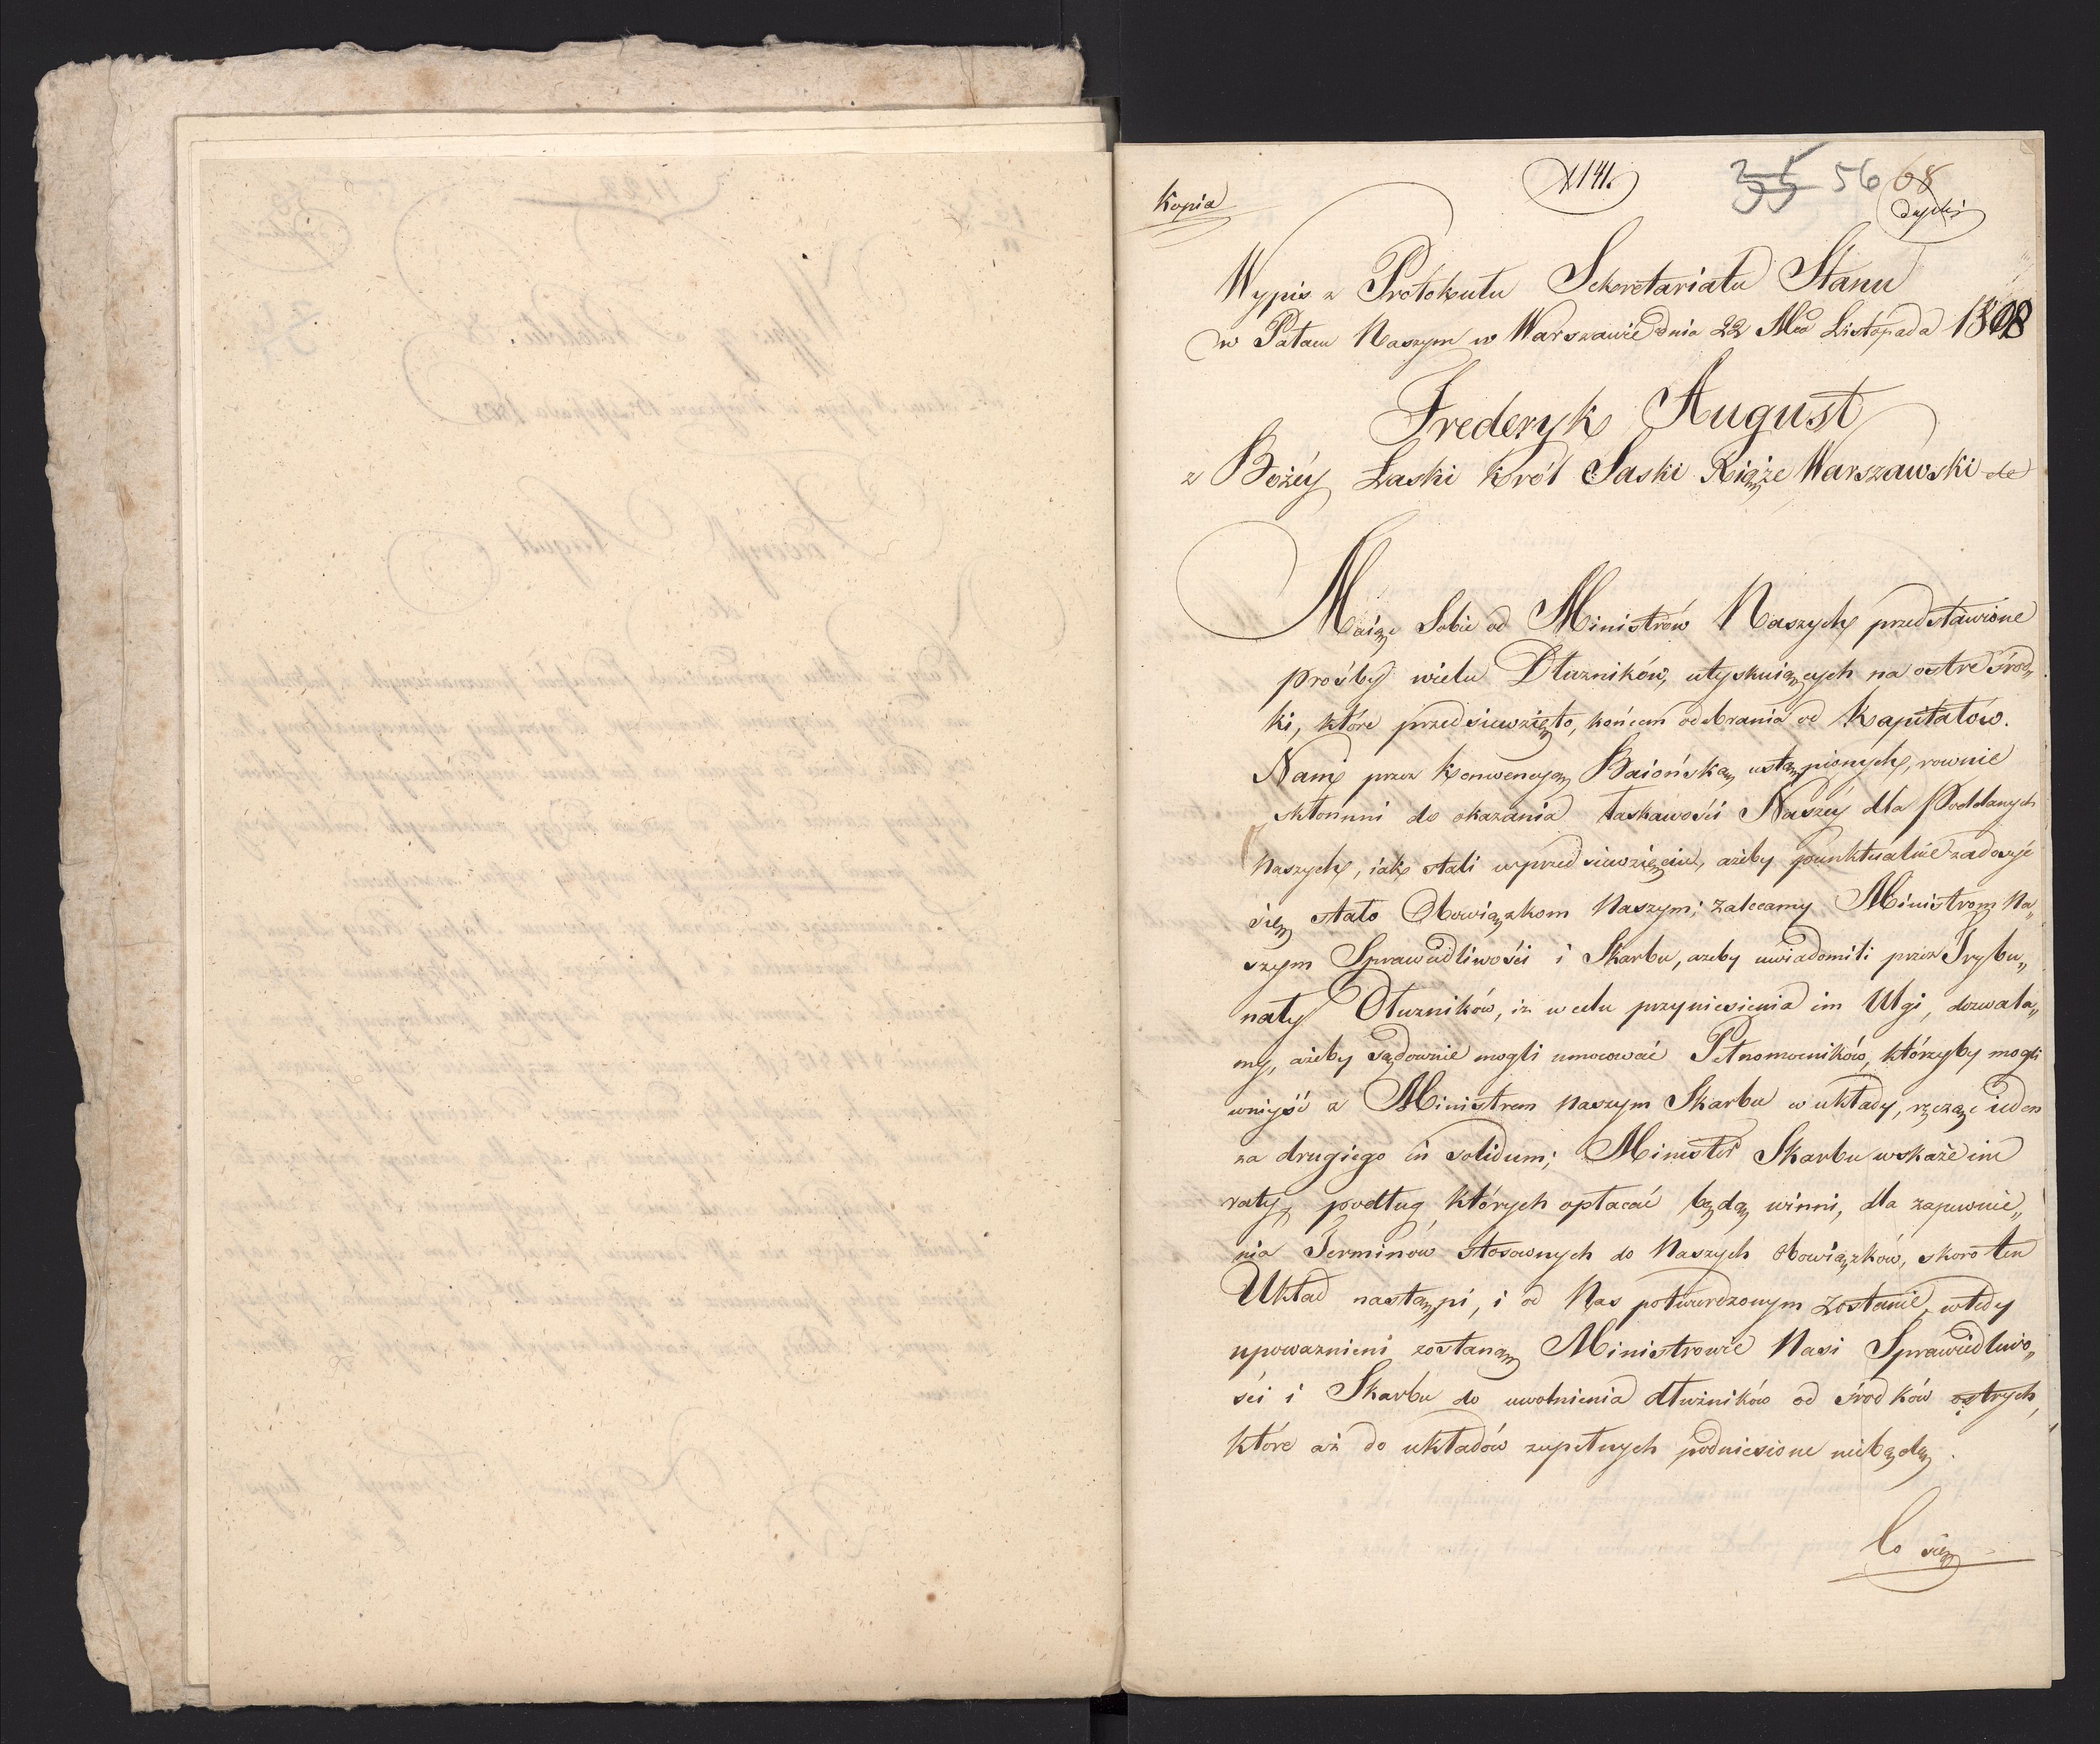 Kopia
141.
56 68
Wypis z Protokułu Sekretariatu Stanu
w Pałacu Naszym w Warszawie dnia 22 Mca Listopada 1808
Frederyk August
z Bożéy Łaski Król Saski Xiąże Warszawski &c
Maiąc Sobie od Ministrów Naszych przedstawione
prośby wielu Dłużników, utyskuiących na ostre środ„
ki, które przedsiewzięto, końcem odebrania od Kapitałów.
Nam przez Konwencyą Baiońską ustąpionych, rownie
skłonnni do okazania łaskawości Naszéy dla Poddanych
Naszych, iak stali w przedsiewzięciu, ażeby punktualnie zadosyć
się stało Obowiązkom Naszym; zalecamy Ministrom Na„
szym Sprawiedliwości i Skarbu, ażeby uwiadomili przez Trybu„
nały Dłużników, iż w celu przyniesienia im Ulgi, dozwala„
my, ażeby Sądownie mogli umocować Pełnomocników, którzyby mogli
wniyść z Ministrem Naszym Skarbu w układy, ręcząc ieden
za drugiego in solidum; Minister Skarbu wskaże im
raty, podług których opłacać będą winni, dla zapewnie„
nia Terminów stosownych do Naszych Obowiązków, skoro ten
Układ nastąpi, i od Nas potwierdzonym zostanie, wtedy
upoważnieni zostaną Ministrowie Nasi Sprawiedliwo„
ści i Skarbu do uwolnienia dłużników od środków ostrych,
które aż do układów zupełnych podniesione niebędą.
Co się